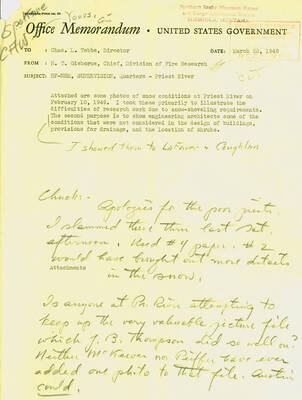 Office Memorandum • UNITED STATES GOVERNMENT
TO : Chas. L. Tebbe, Director
DATE: March 22, 1949
FROM : H. T. Gisborne, Chief, Division of Fire Research
SUBJECT: SUPERVISION, Quarters - Priest River
Attached are some photos of snow conditions at Priest River on
February 10, 1949. I took these primarily to illustrate the
difficulties of research work due to snow-shoveling requirements.
The second purpose is to show engineering architects some of the
conditions that were not considered in the design of buildings,
provisions for drainage, and the location of shrubs.
I showed them to
Chuck:-
Apologies for the poor prints.
I slammed these thru last Sat.
afternoon. Used #4 paper. #2
would have brought out more details
Attachments
in the snow.
Is anyone at Pr. River attempting to
keep up the very valuable picture file
which J. B. Thompson did so well on?
Neither nor have ever
added one photo to that file. Austin
could.